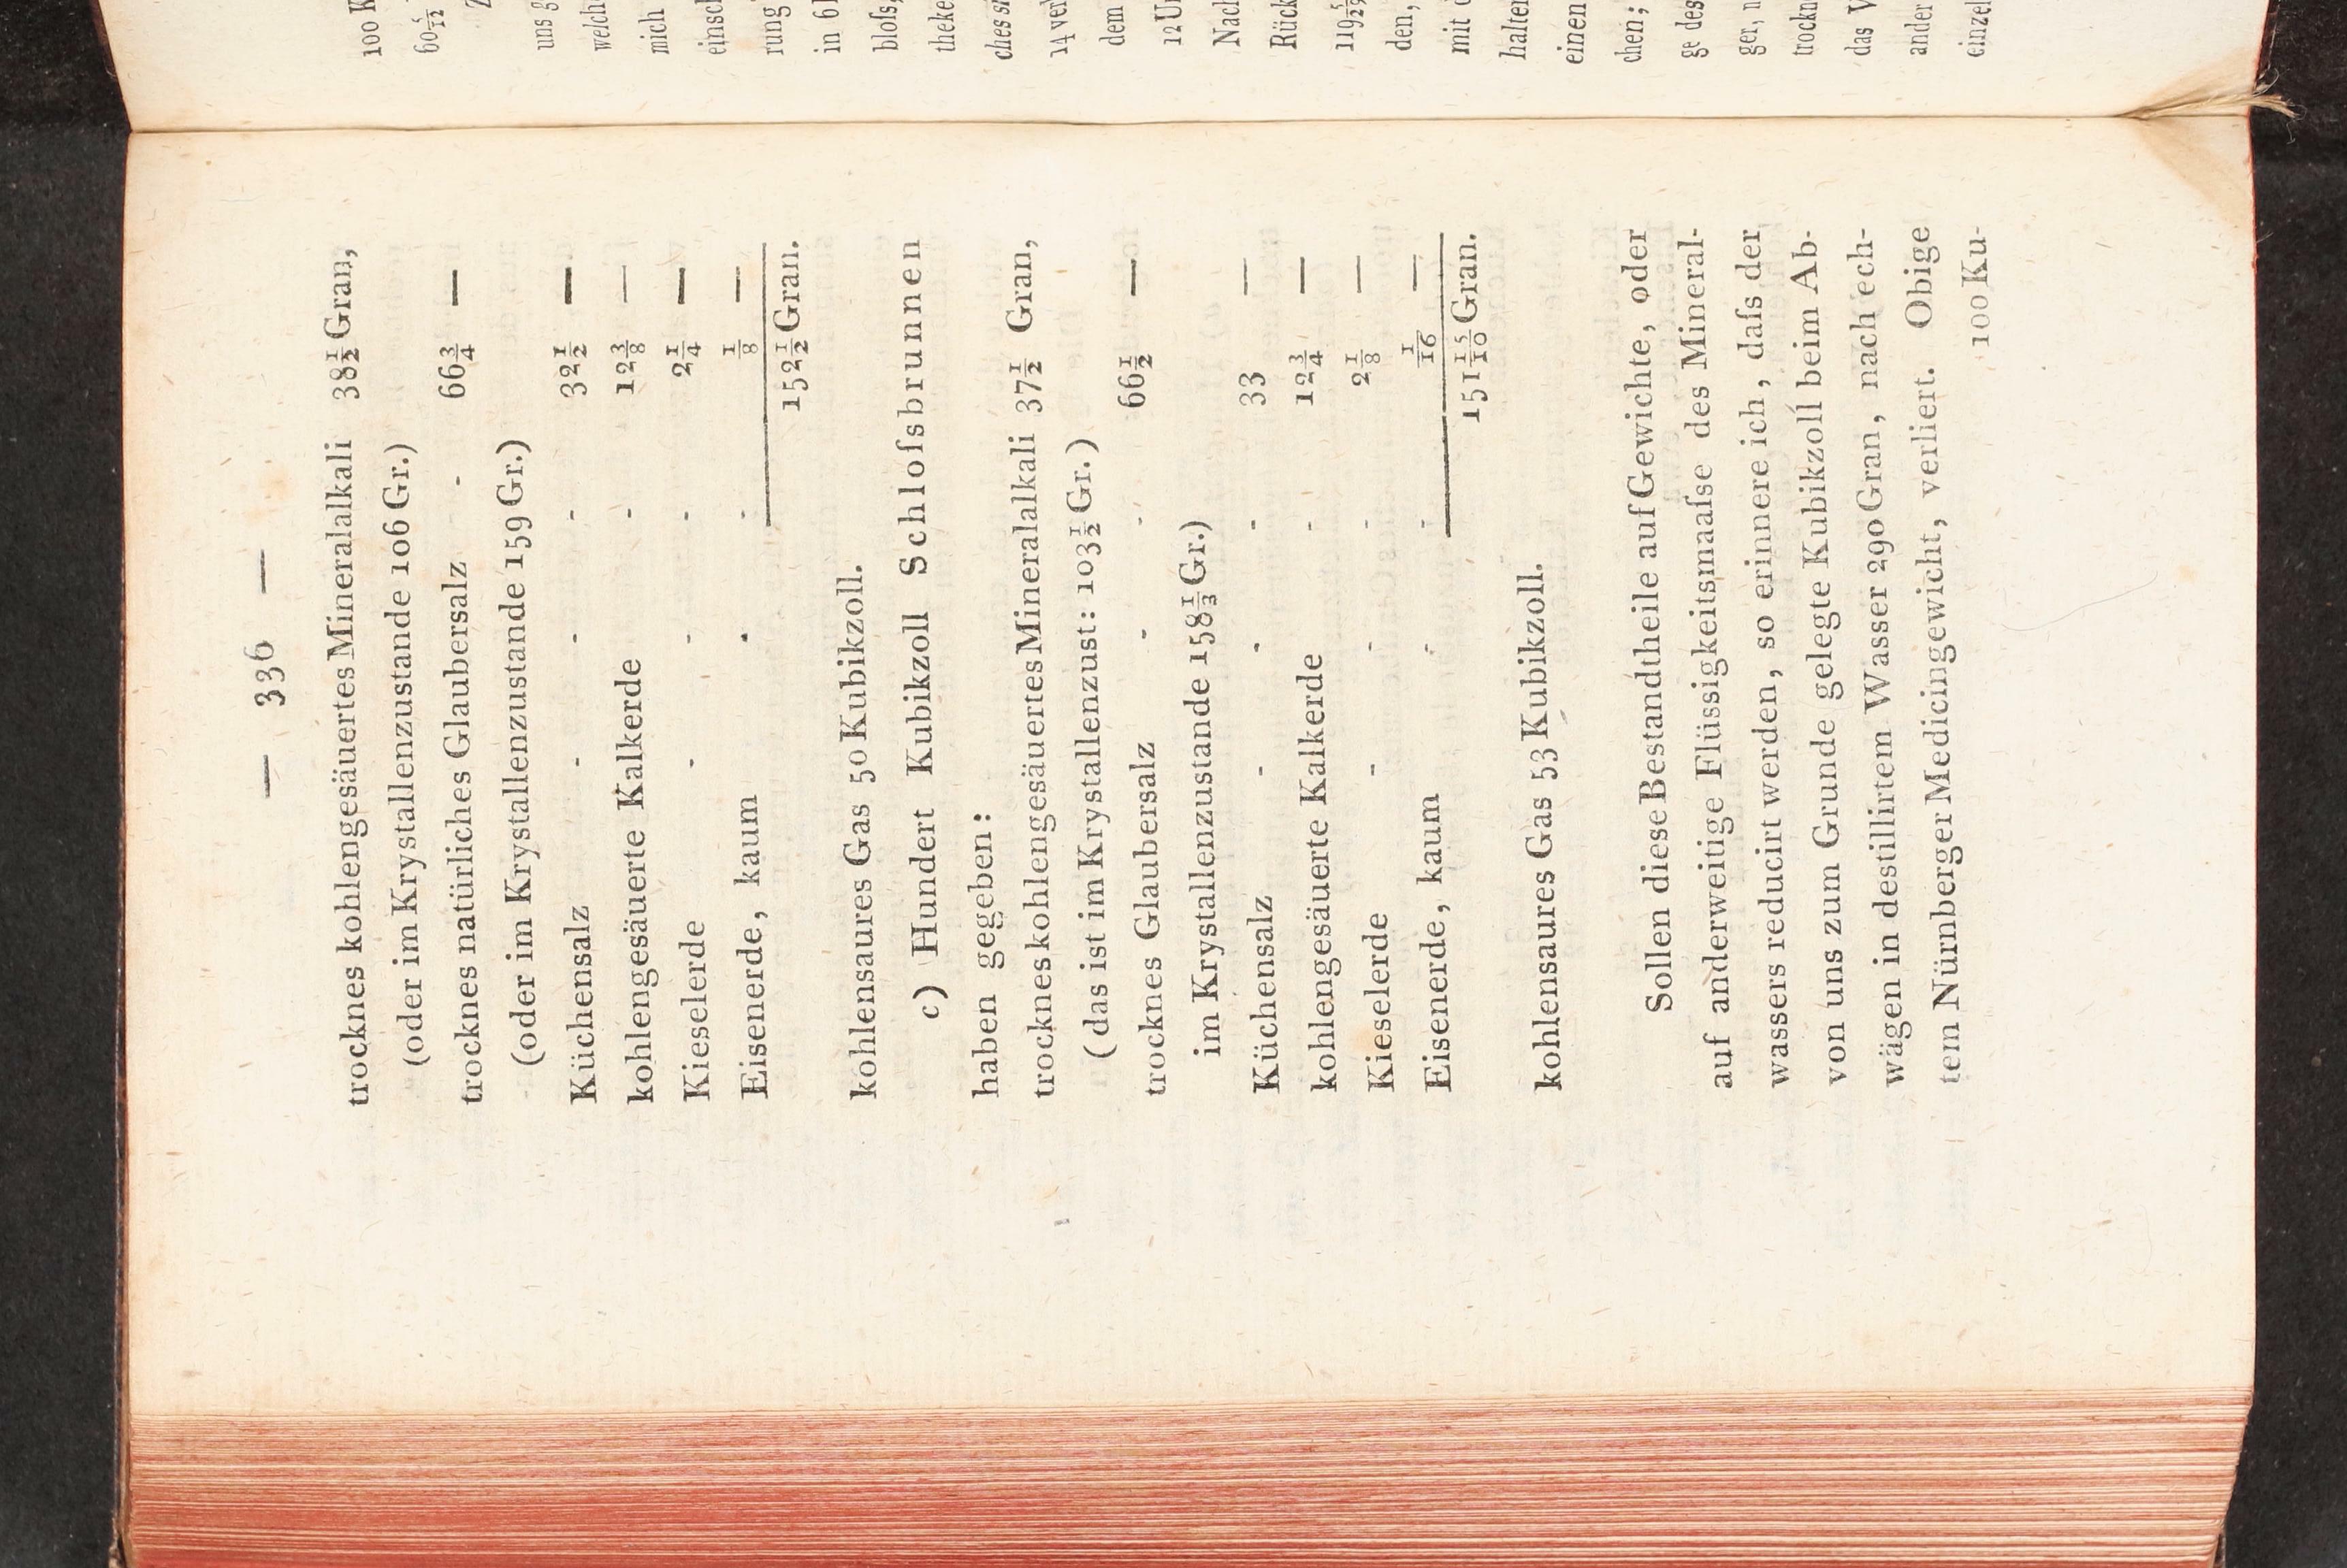 — 336 —
trocknes kohlengesäuertes Mineralalkali 38½ Gran,
(oder im Krystallenzustande 106 Gr.)
trocknes natürliches Glaubersalz - 66¾ —
(oder im Krystallenzustande 159 Gr.)
Küchensalz - - - 32½ —
kohlengesäuerte Kalkerde - 12⅜ —
Kieselerde - - - 2¼ —
Eisenerde, kaum - - ⅛ —
152½ Gran.
kohlensaures Gas 50 Kubikzoll.
c) Hundert Kubikzoll Schloſsbrunnen
haben gegeben:
trocknes kohlengesäuertes Mineralalkali 37½ Gran,
(das ist im Krystallenzust: 103½ Gr.)
trocknes Glaubersalz - - 66½ —
im Krystallenzustande 158⅓ Gr.)
Küchensalz - - - 33 —
kohlengesäuerte Kalkerde - 12¾ —
Kieselerde - - - 2⅛ —
Eisenerde, kaum - - 1/16 —
151 15/10 Gran.
kohlensaures Gas 53 Kubikzoll.
Sollen diese Bestandtheile auf Gewichte, oder
auf anderweitige Flüssigkeitsmaaſse des Mineral-
wassers reducirt werden, so erinnere ich, daſs der
von uns zum Grunde gelegte Kubikzoll beim Ab-
wägen in destillirtem Wasser 290 Gran, nach ech-
tem Nürnberger Medicingewicht, verliert. Obige
100 Ku-
100 K
60 5/12
uns g
welch
mich
einsc
rung
in 6
bloſs,
theke
ches s
14 ver
dem
12 U
Nach
Rück
119
den,
mit
halte
einen
chen;
ge des
ger, n
trockn
das V
ander
einzel